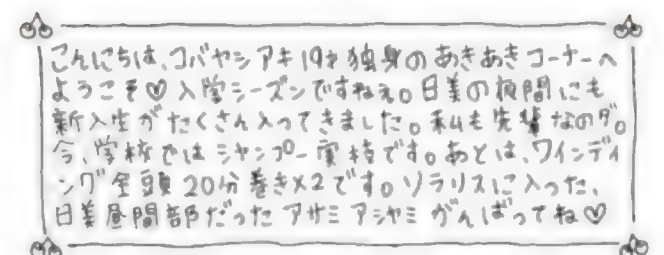 こんにちは、コバヤシアキ19才独身のあきあきコーナーへ
ようこそ♡入学シーズンですねぇ。日美の夜間にも
新入生がたくさん入ってきました。私も先輩なのダ。
今、学校ではシャンプー実技です。あとは、ワインディ
ング全頭20分巻き×2です。ソラリスに入った、
日美昼間部だったアサミアシャミがんばってね♡